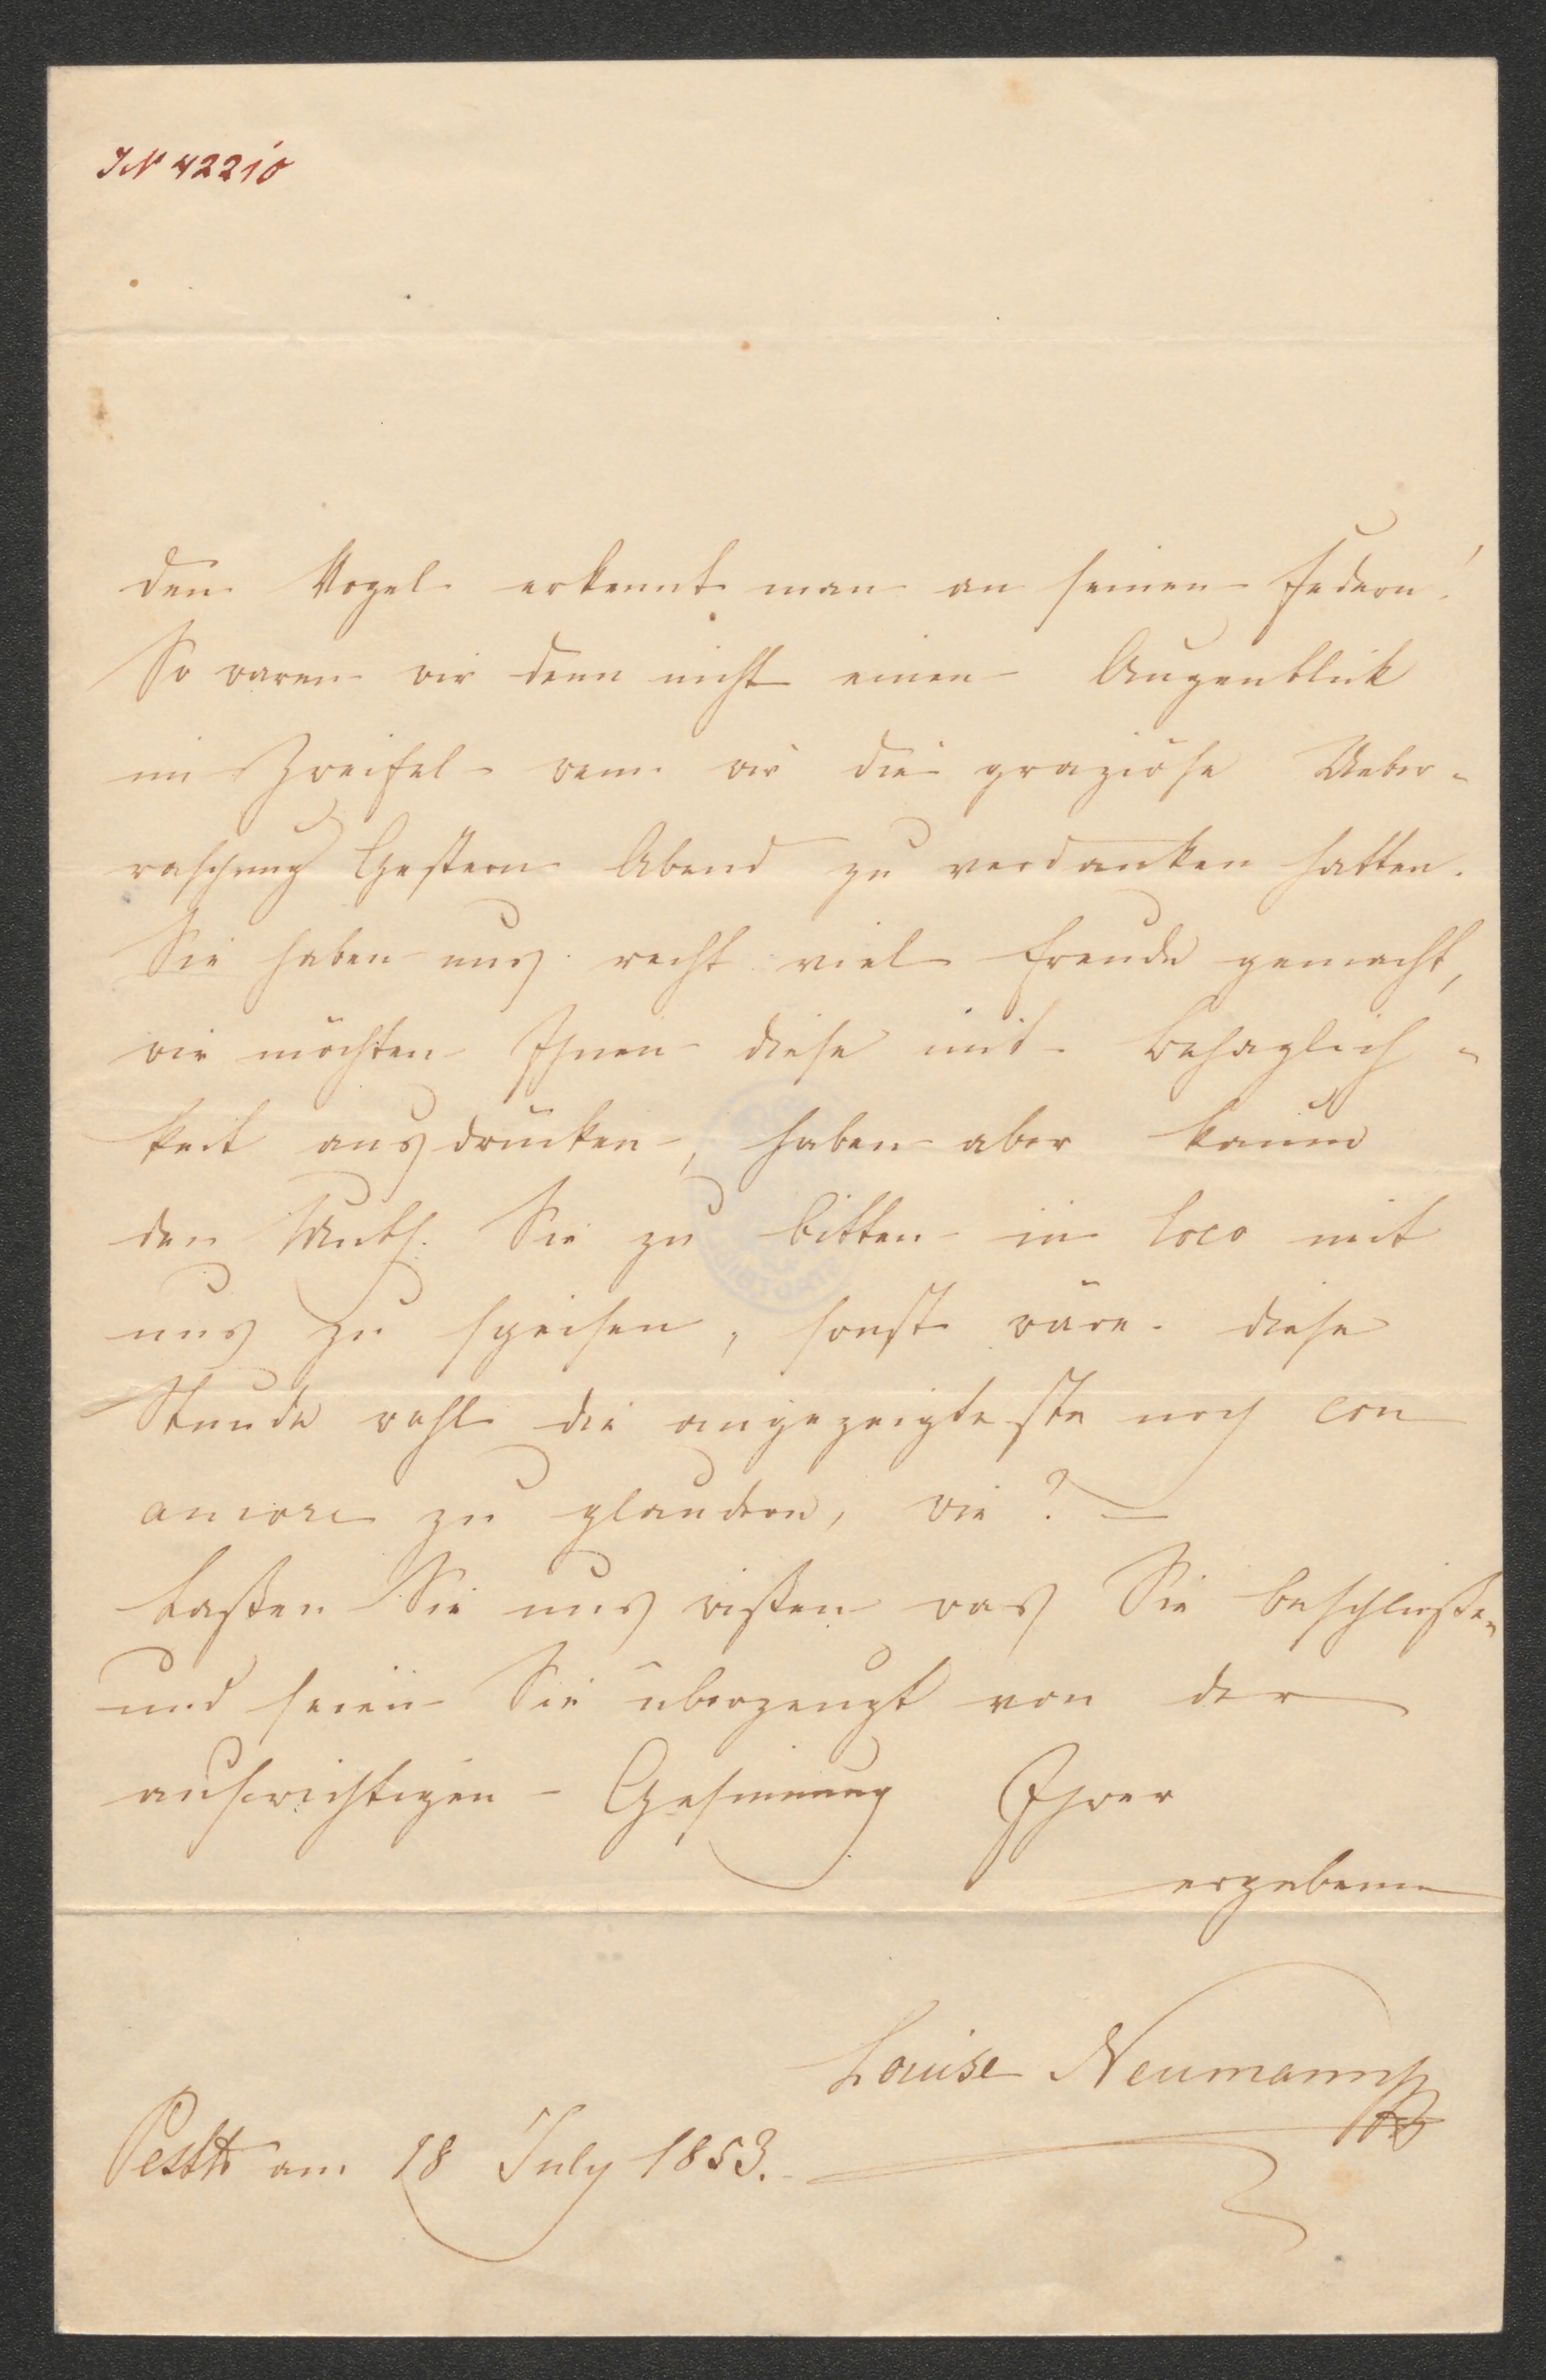 IN 42210
Den Vogel erkennt man an seinen Federn!
So waren wir denn nicht einen Augenblick
im Zweifel wem wir die graziöse Ueber-
raschung Gestern Abend zu verdanken hatten.
Sie haben uns recht viel Freude gemacht,
wir möchten Ihnen diese mit Behaglich-
keit ausdrücken, haben aber kaum
den Muth Sie zu bitten in loco mit
uns zu speisen, sonst wäre diese
Stunde wohl die angezeigteste noch con
amore zu plaudern, wie? —
Laßen Sie uns wißen was Sie beschließen
und seien Sie überzeugt von der
aufrichtigen Gesinnung Ihrer
ergebenen
Louise Neumann
Pesth am 18 July 1853.